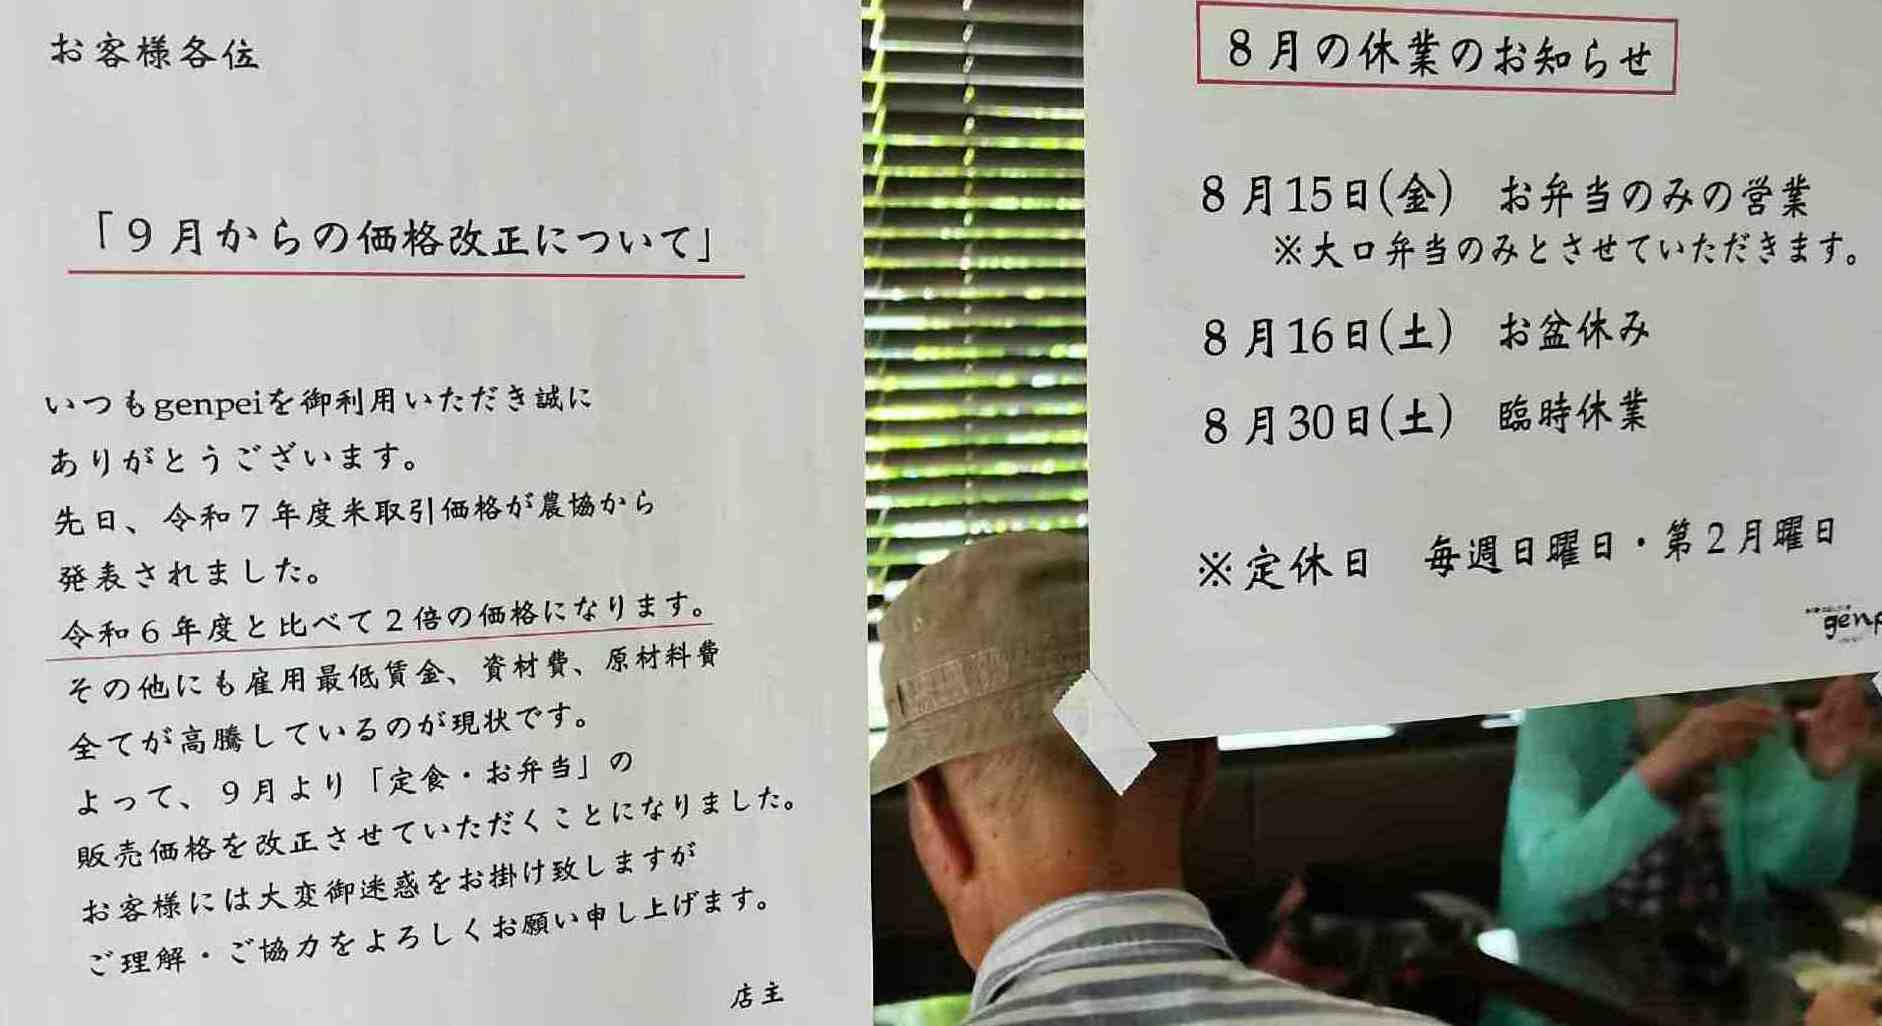 お客様各位
「９月からの価格改正について」
いつもgenpeiを御利用いただき誠に
ありがとうございます。
先日、令和７年度米取引価格が農協から
発表されました。
令和６年度と比べて２倍の価格になります。
その他にも雇用最低賃金、資材費、原材料費
全てが高騰しているのが現状です。
よって、９月より「定食・お弁当」の
販売価格を改正させていただくことになりました。
お客様には大変御迷惑をお掛け致しますが
ご理解・ご協力をよろしくお願い申し上げます。
店主
８月の休業のお知らせ
８月15日(金)　お弁当のみの営業
※大口弁当のみとさせていただきます。
８月16日(土)　お盆休み
８月30日(土)　臨時休業
※定休日　毎週日曜日・第２月曜日
genp